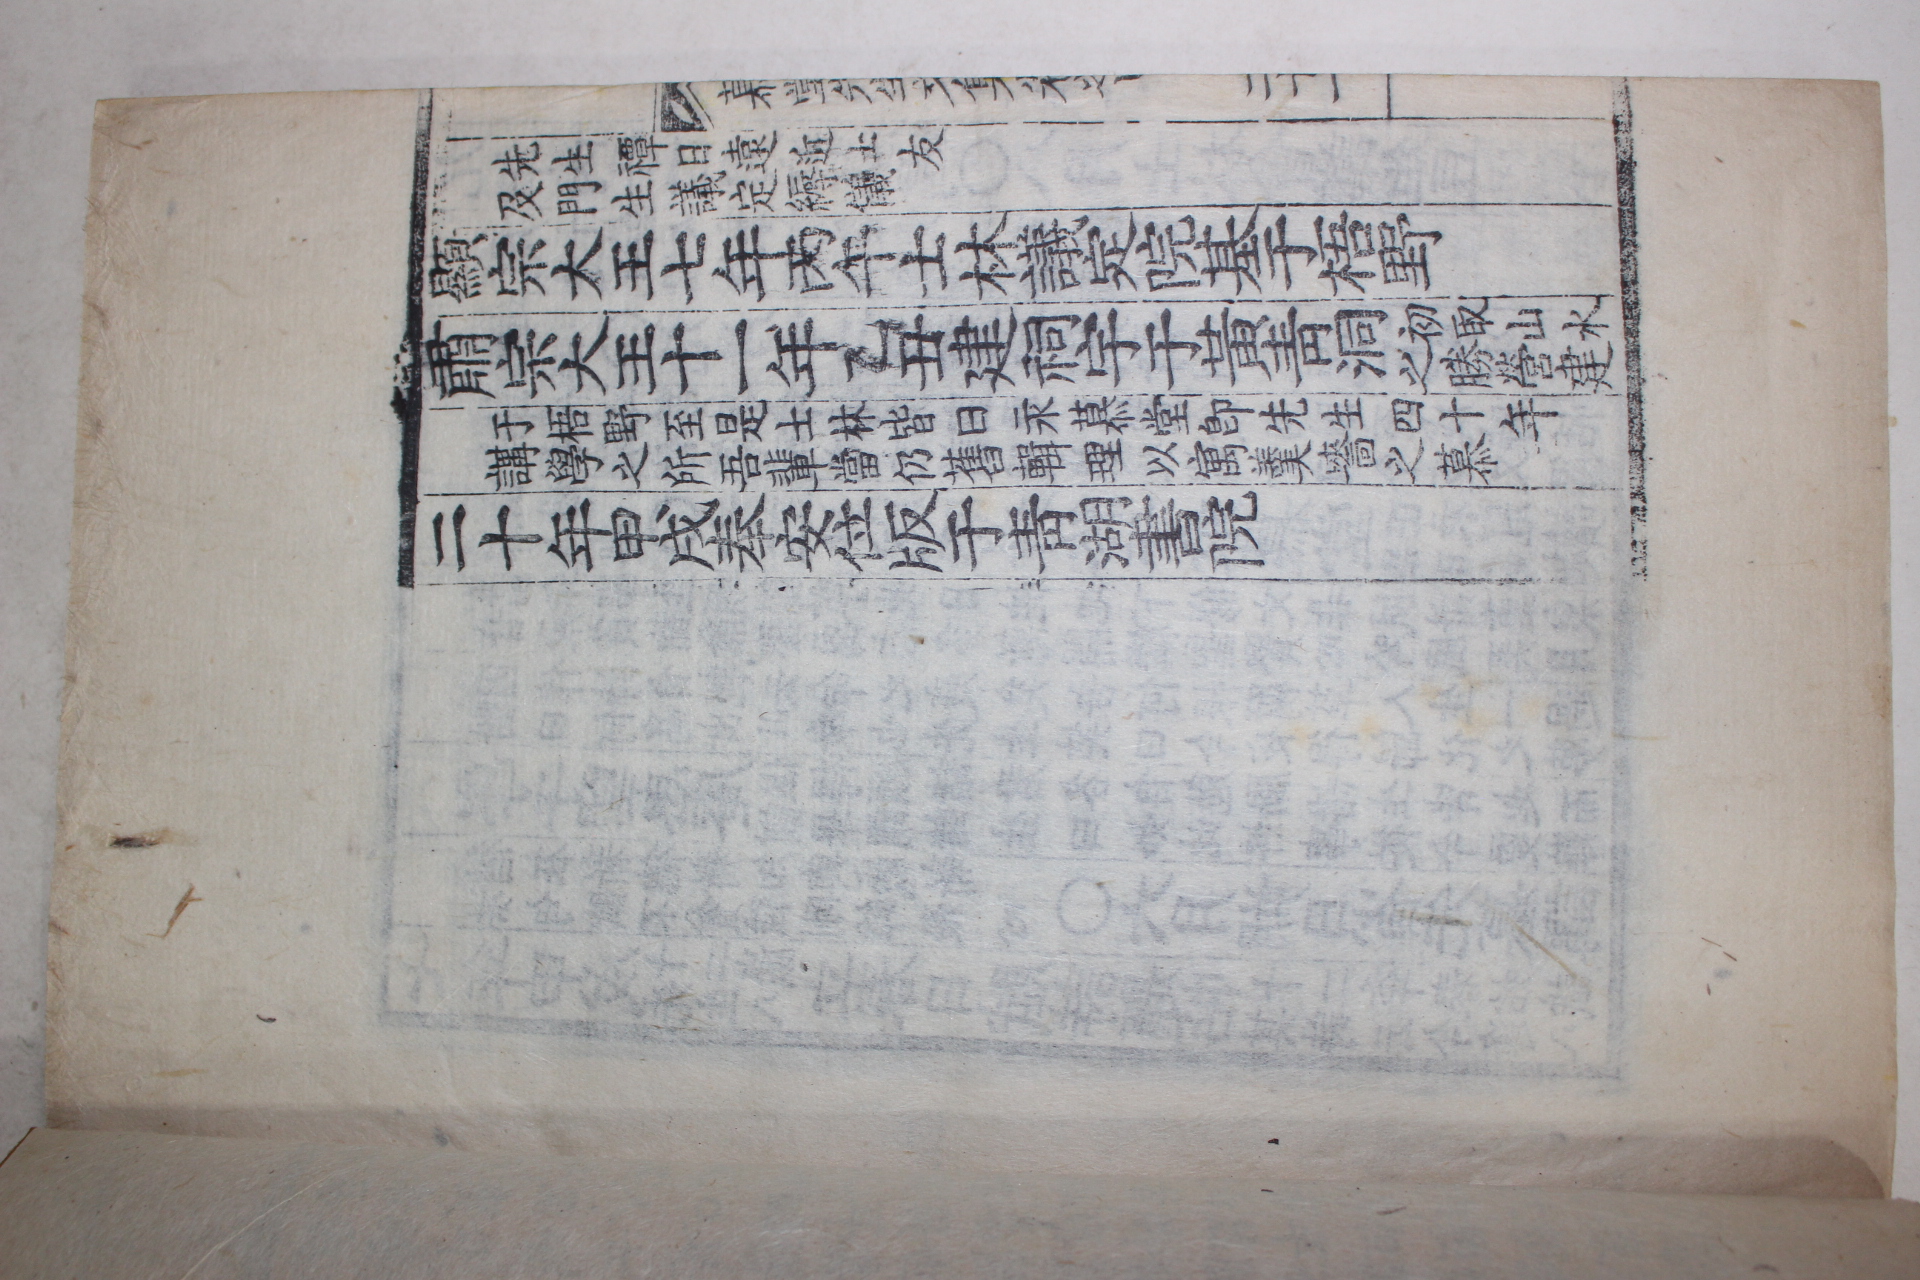 慕堂先生文集卷之
二十一
先生禫日遠近士友
及門生議定縟儀
顯宗大王七年丙午士林議定院基于梧野
肅宗大王十一年乙丑建祠宇于黃青洞初取山水
之勝營建
于梧野至是士林皆曰永慕堂卽先生四十年
講學之所吾輩當仍舊輯理以寓羹墻之慕
二十年甲戌奉安位版于靑湖書院